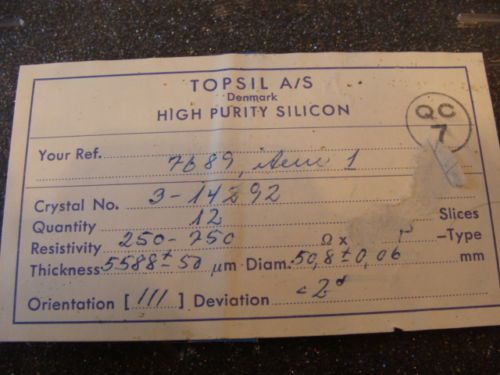 TOPSIL A/S
Denmark
HIGH PURITY SILICON
QC
7
Your Ref. 7689, Item 1
Crystal No. 3-14292
Quantity 12 Slices
Resistivity 250-750 Ω x P-Type
Thickness 5588 ± 50 μm Diam. 50,8 ± 0,06 mm
Orientation [111] Deviation <2°